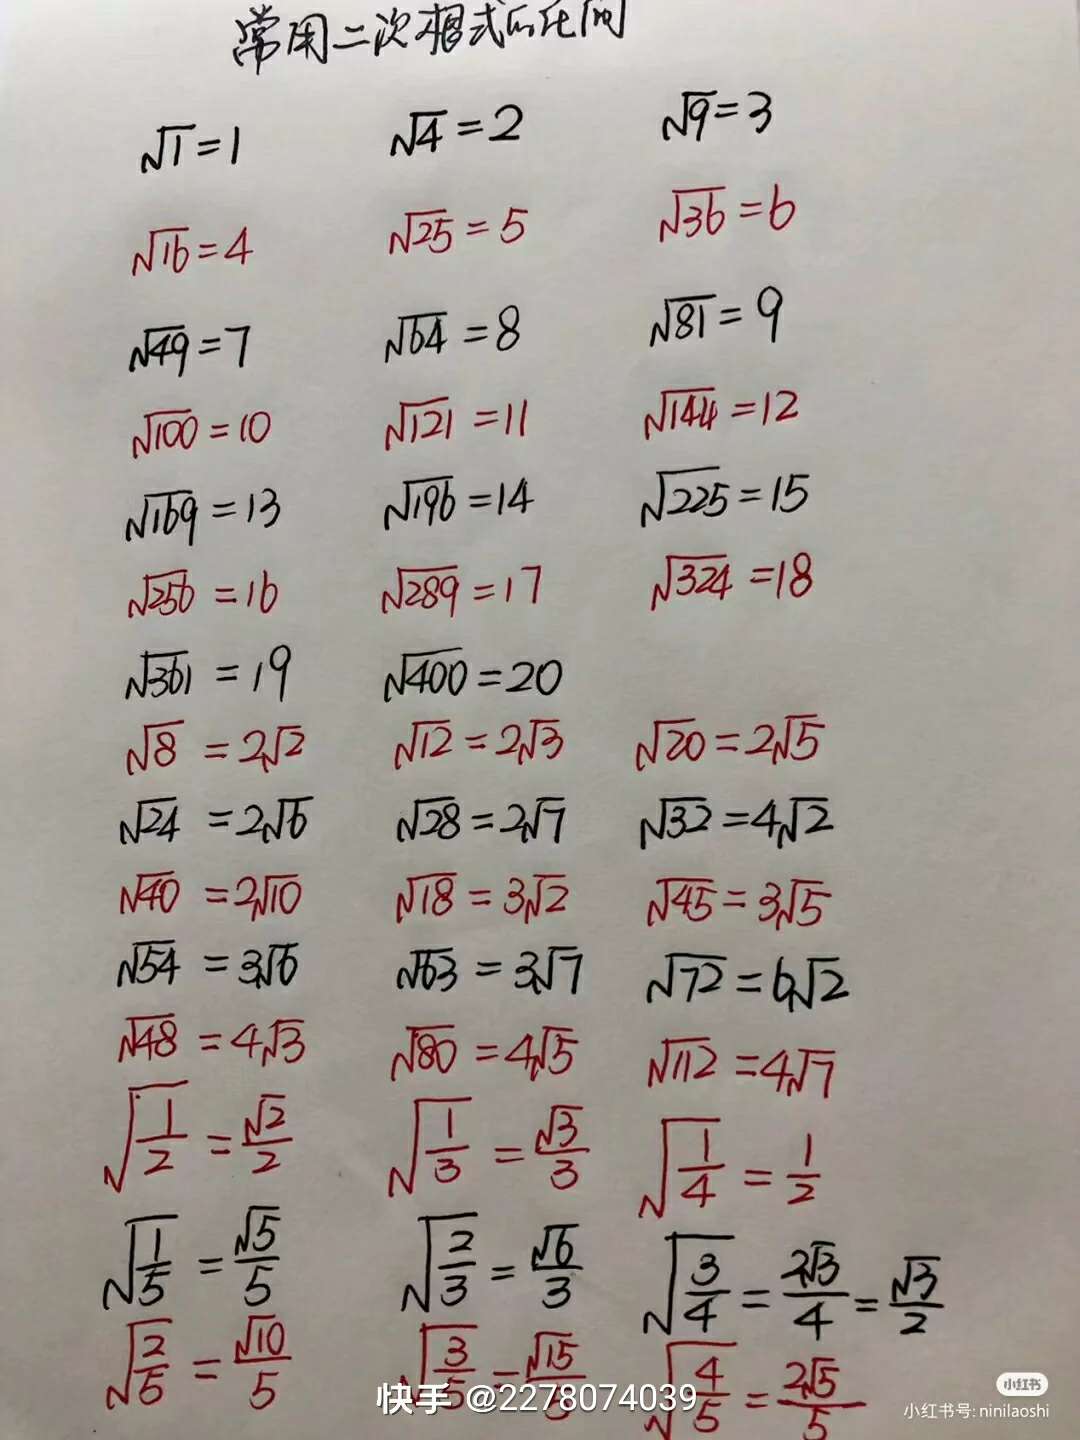 常用二次根式的化简
√1=1 √4=2 √9=3
√16=4 √25=5 √36=6
√49=7 √64=8 √81=9
√100=10 √121=11 √144=12
√169=13 √196=14 √225=15
√256=16 √289=17 √324=18
√361=19 √400=20
√8=2√2 √12=2√3 √20=2√5
√24=2√6 √28=2√7 √32=4√2
√40=2√10 √18=3√2 √45=3√5
√54=3√6 √63=3√7 √72=6√2
√48=4√3 √80=4√5 √112=4√7
√(1/2)=√2/2 √(1/3)=√3/3 √(1/4)=1/2
√(1/5)=√5/5 √(2/3)=√6/3 √(3/4)=2√3/4=√3/2
√(2/5)=√10/5 √(3/5)=√15/5 √(4/5)=2√5/5
快手 @2278074039
小红书
小红书号: ninilaoshi